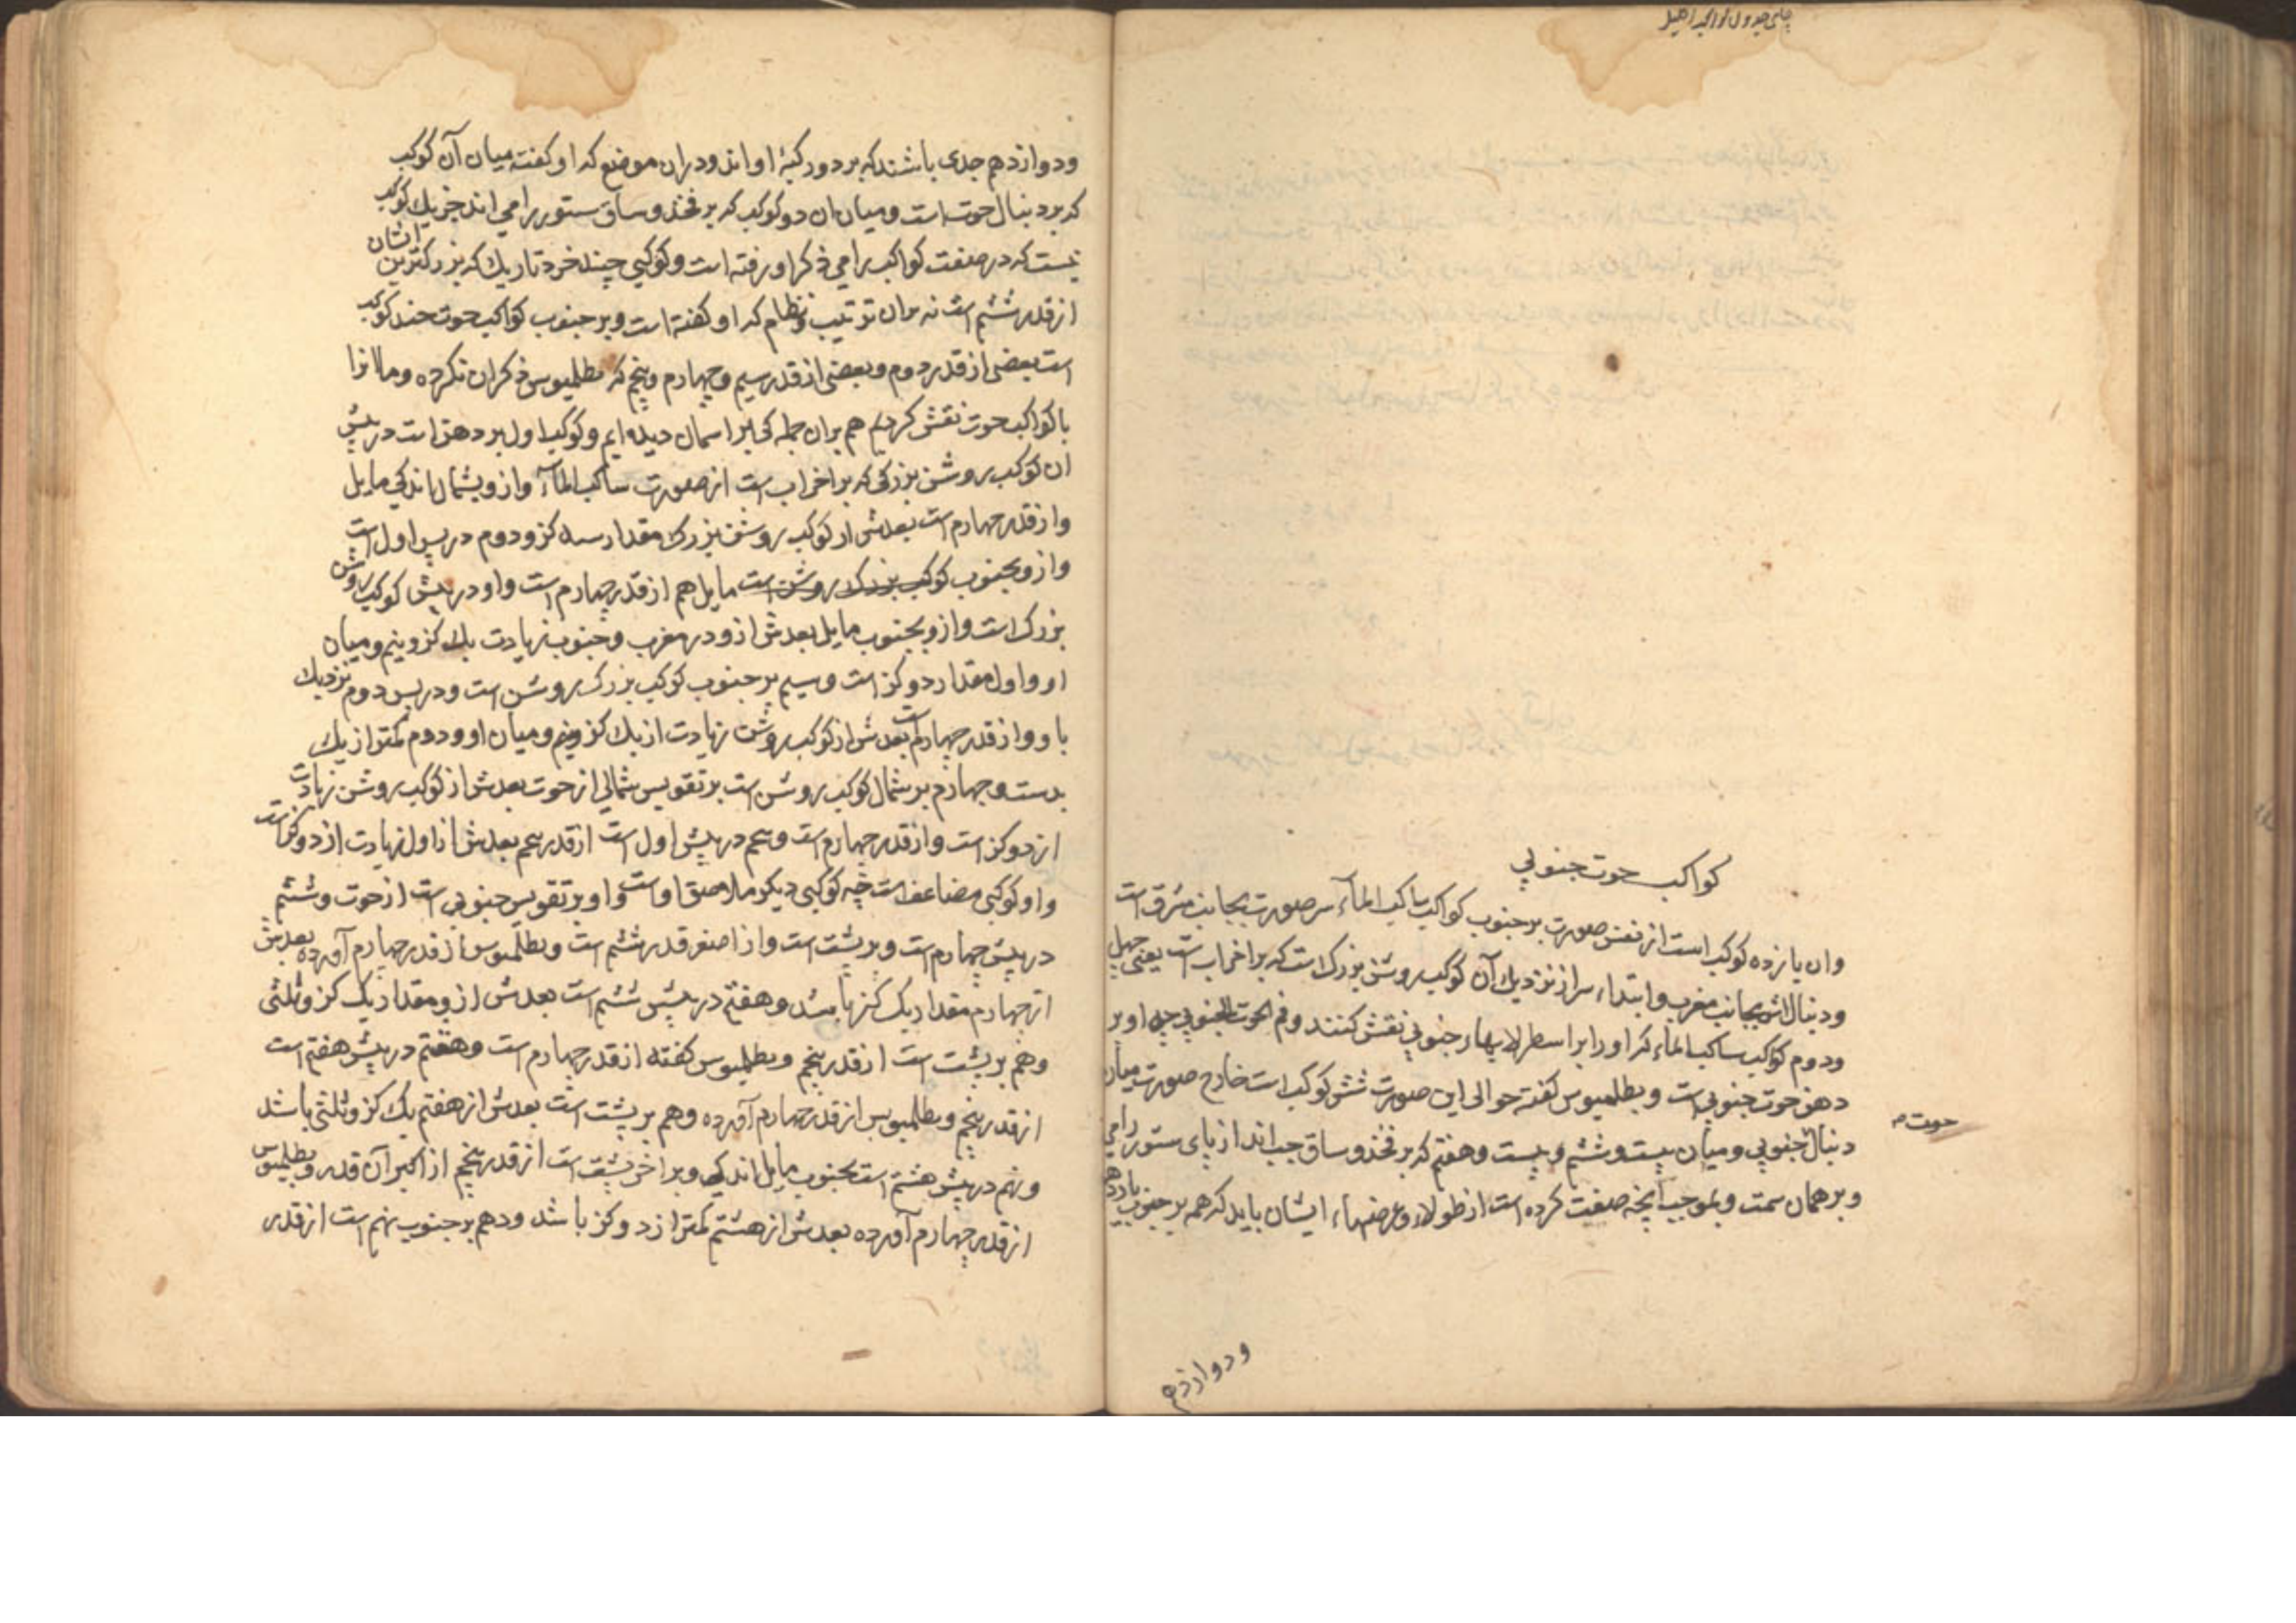 کواکب حوت جنوبی
وان یازده کوکب است از نفس صورت بر جنوب کواکب ساکب المآء سر صورت بجانب مشرق است
ودنبالش بجانب مغرب وابتداء سر از نزدیك آن کوکب روشن بزرك است که بر اخر اب است یعنی چهل
ودوم کوکب ساکب الماء که اورا بر اسطرلابهاء جنوبی نقش کنند وفم الحوت الجنوبی چه او بر
دهن حوت جنوبی است وبطلمیوس کفته حوالی این صورت شش کوکب است خارج صورت میان
دنبال جنوبی ومیان بیست وششم وبیست وهفتم که بر فخذ وساق چپ اند از پای ستور رامی
وبر همان سمت وبموجب آنچه صفت کرده است از طولاء وعرضهاء ایشان باید که همه بر جنوب یازدهم
حوت
ودوازدهم
ودوازدهم جدی باشند که بر دو رکبهٔ او اند ودران موضع که او کفته میان آن کوکب
که بر دنبال حوت است ومیان ان دو کوکب که بر فخذ وساق ستور رامی اند جز یك کوکب
نیست که در صفت کواکب رامی ذکر او رفته است وکوکبی چند خرد تاریك که بزرکترین ایشان
از قدر ششم است نه بران ترتیب ونظام که او کفته است وبر جنوب کواکب حوت چند کوکب
است بعضی از قدر دوم وبعضی از قدر سیم وچهارم وپنجم که بطلمیوس ذکر ان نکرده وما انرا
با کواکب حوت نقش کردیم هم بران جمله کی بر اسمان دیده ایم وکوکب اول بر دهن است در پیش
ان کوکب روشن بزرکی که بر اخر اب است از صورت ساکب المآء وازو بشمال اندکی مایل
واز قدر چهارم است بعدش از کوکب روشن بزرك مقدار سه کز ودوم در پس اول است
وازو بجنوب کوکب بزرك روشن است مایل هم از قدر چهارم است واو در پیش کوکب روشن
بزرك است وازو بجنوب مایل بعدش ازو در مغرب وجنوب زیادت یك کز ونیم ومیان
او واول مقدار دو کز است وسیم بر جنوب کوکب بزرك روشن است ودر پس دوم نزدیك
باو واز قدر چهارم است بعدش از کوکب روشن زیادت از یك کز ونیم ومیان او ودوم کمتر از یك
بدست وچهارم بر شمال کوکب روشن است بر تقویس شمالی از حوت بعدش از کوکب روشن زیادت
از دو کز است واز قدر چهارم است وپنجم در پیش اول است از قدر پنجم بعدش از اول زیادت از دو کز است
واو کوکبی مضاعف است چه کوکبی دیکر ملاصق اوست واو بر تقویس جنوبی است از حوت وششم
در پیش چهارم است وبر پشت است واز اصغر قدر ششم است وبطلمیوس از قدر چهارم آورده بعدش
از چهارم مقدار یك کز باشد وهفتم در پیش ششم است بعدش ازو مقدار یك کز وثلثی
وهم بر پشت است از قدر پنجم وبطلمیوس کفته از قدر چهارم است وهشتم در پیش هفتم است
از قدر پنجم وبطلمیوس از قدر چهارم آورده وهم بر پشت است بعدش از هفتم یك کز وثلثی باشد
ونهم در پیش هشتم است بجنوب مایل اندکی وبر اخر پشت است از قدر پنجم از اکبر آن قدر وبطلمیوس
از قدر چهارم آورده بعدش از هشتم کمتر از دو کز باشد ودهم بر جنوب نهم است از قدر